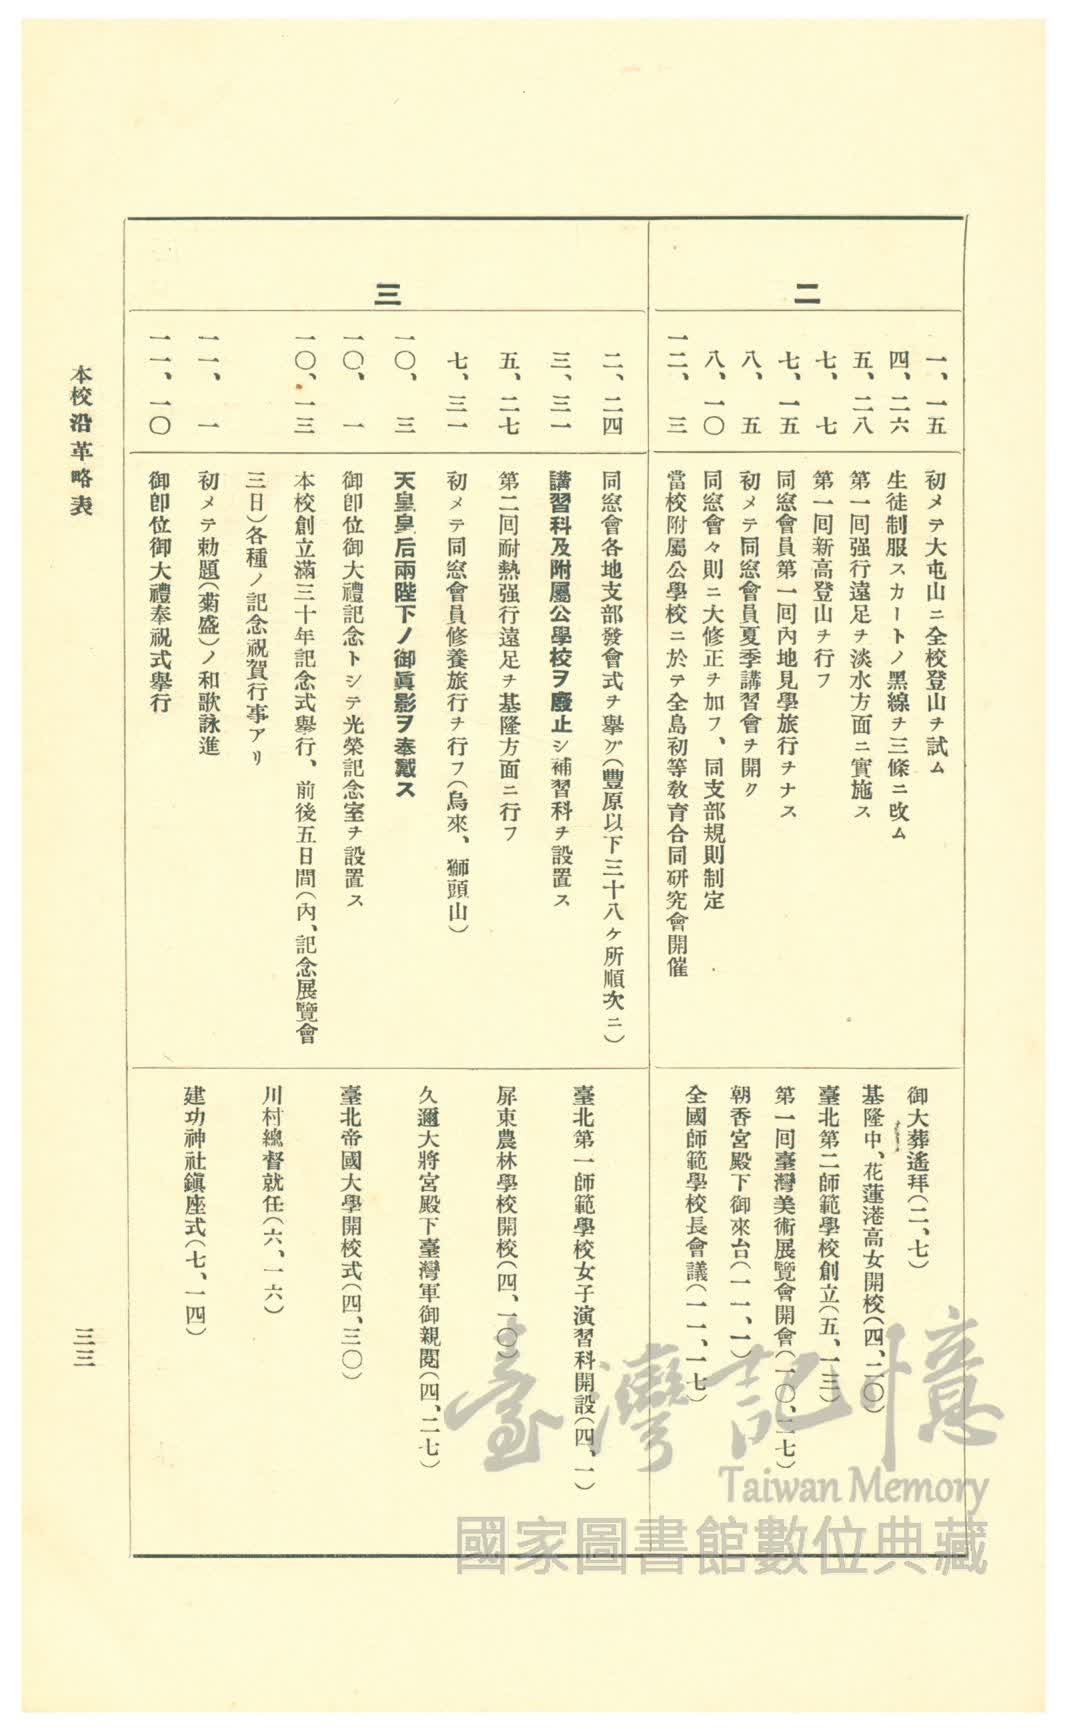 二
一、一五
初メテ大屯山ニ全校登山ヲ試ム
四、二六
生徒制服スカートノ黑線ヲ三條ニ改ム
五、二八
第一回强行遠足ヲ淡水方面ニ實施ス
七、七
第一回新高登山ヲ行フ
七、一五
同窓會員第一回內地見學旅行ヲナス
八、五
初メテ同窓會員夏季講習會ヲ開ク
八、一〇
同窓會々則ニ大修正ヲ加フ、同支部規則制定
一二、三
當校附屬公學校ニ於テ全島初等敎育合同硏究會開催
御大葬遙拜(二、七)
基隆中、花蓮港高女開校(四、二〇)
臺北第二師範學校創立(五、一三)
第一回臺灣美術展覽會開會(一〇、二七)
朝香宮殿下御來台(一一、一)
全國師範學校長會議(一一、一七)
三
二、二四
同窓會各地支部發會式ヲ擧グ(豐原以下三十八ケ所順次ニ)
三、三一
講習科及附屬公學校ヲ廢止シ補習科ヲ設置ス
五、二七
第二回耐熱强行遠足ヲ基隆方面ニ行フ
七、三一
初メテ同窓會員修養旅行ヲ行フ(烏來、獅頭山)
一〇、三
天皇皇后兩陛下ノ御眞影ヲ奉戴ス
一〇、一
御卽位御大禮記念トシテ光榮記念室ヲ設置ス
一〇、一三
本校創立滿三十年記念式擧行、前後五日間(內、記念展覽會
三日)各種ノ記念祝賀行事アリ
一一、一
初メテ勅題(菊盛)ノ和歌詠進
一一、一〇
御卽位御大禮奉祝式擧行
臺北第一師範學校女子演習科開設(四、一)
屏東農林學校開校(四、一〇)
久邇大將宮殿下臺灣軍御親閱(四、二七)
臺北帝國大學開校式(四、三〇)
川村總督就任(六、一六)
建功神社鎭座式(七、一四)
本校沿革略表
三三
臺灣記憶
Taiwan Memory
國家圖書館數位典藏